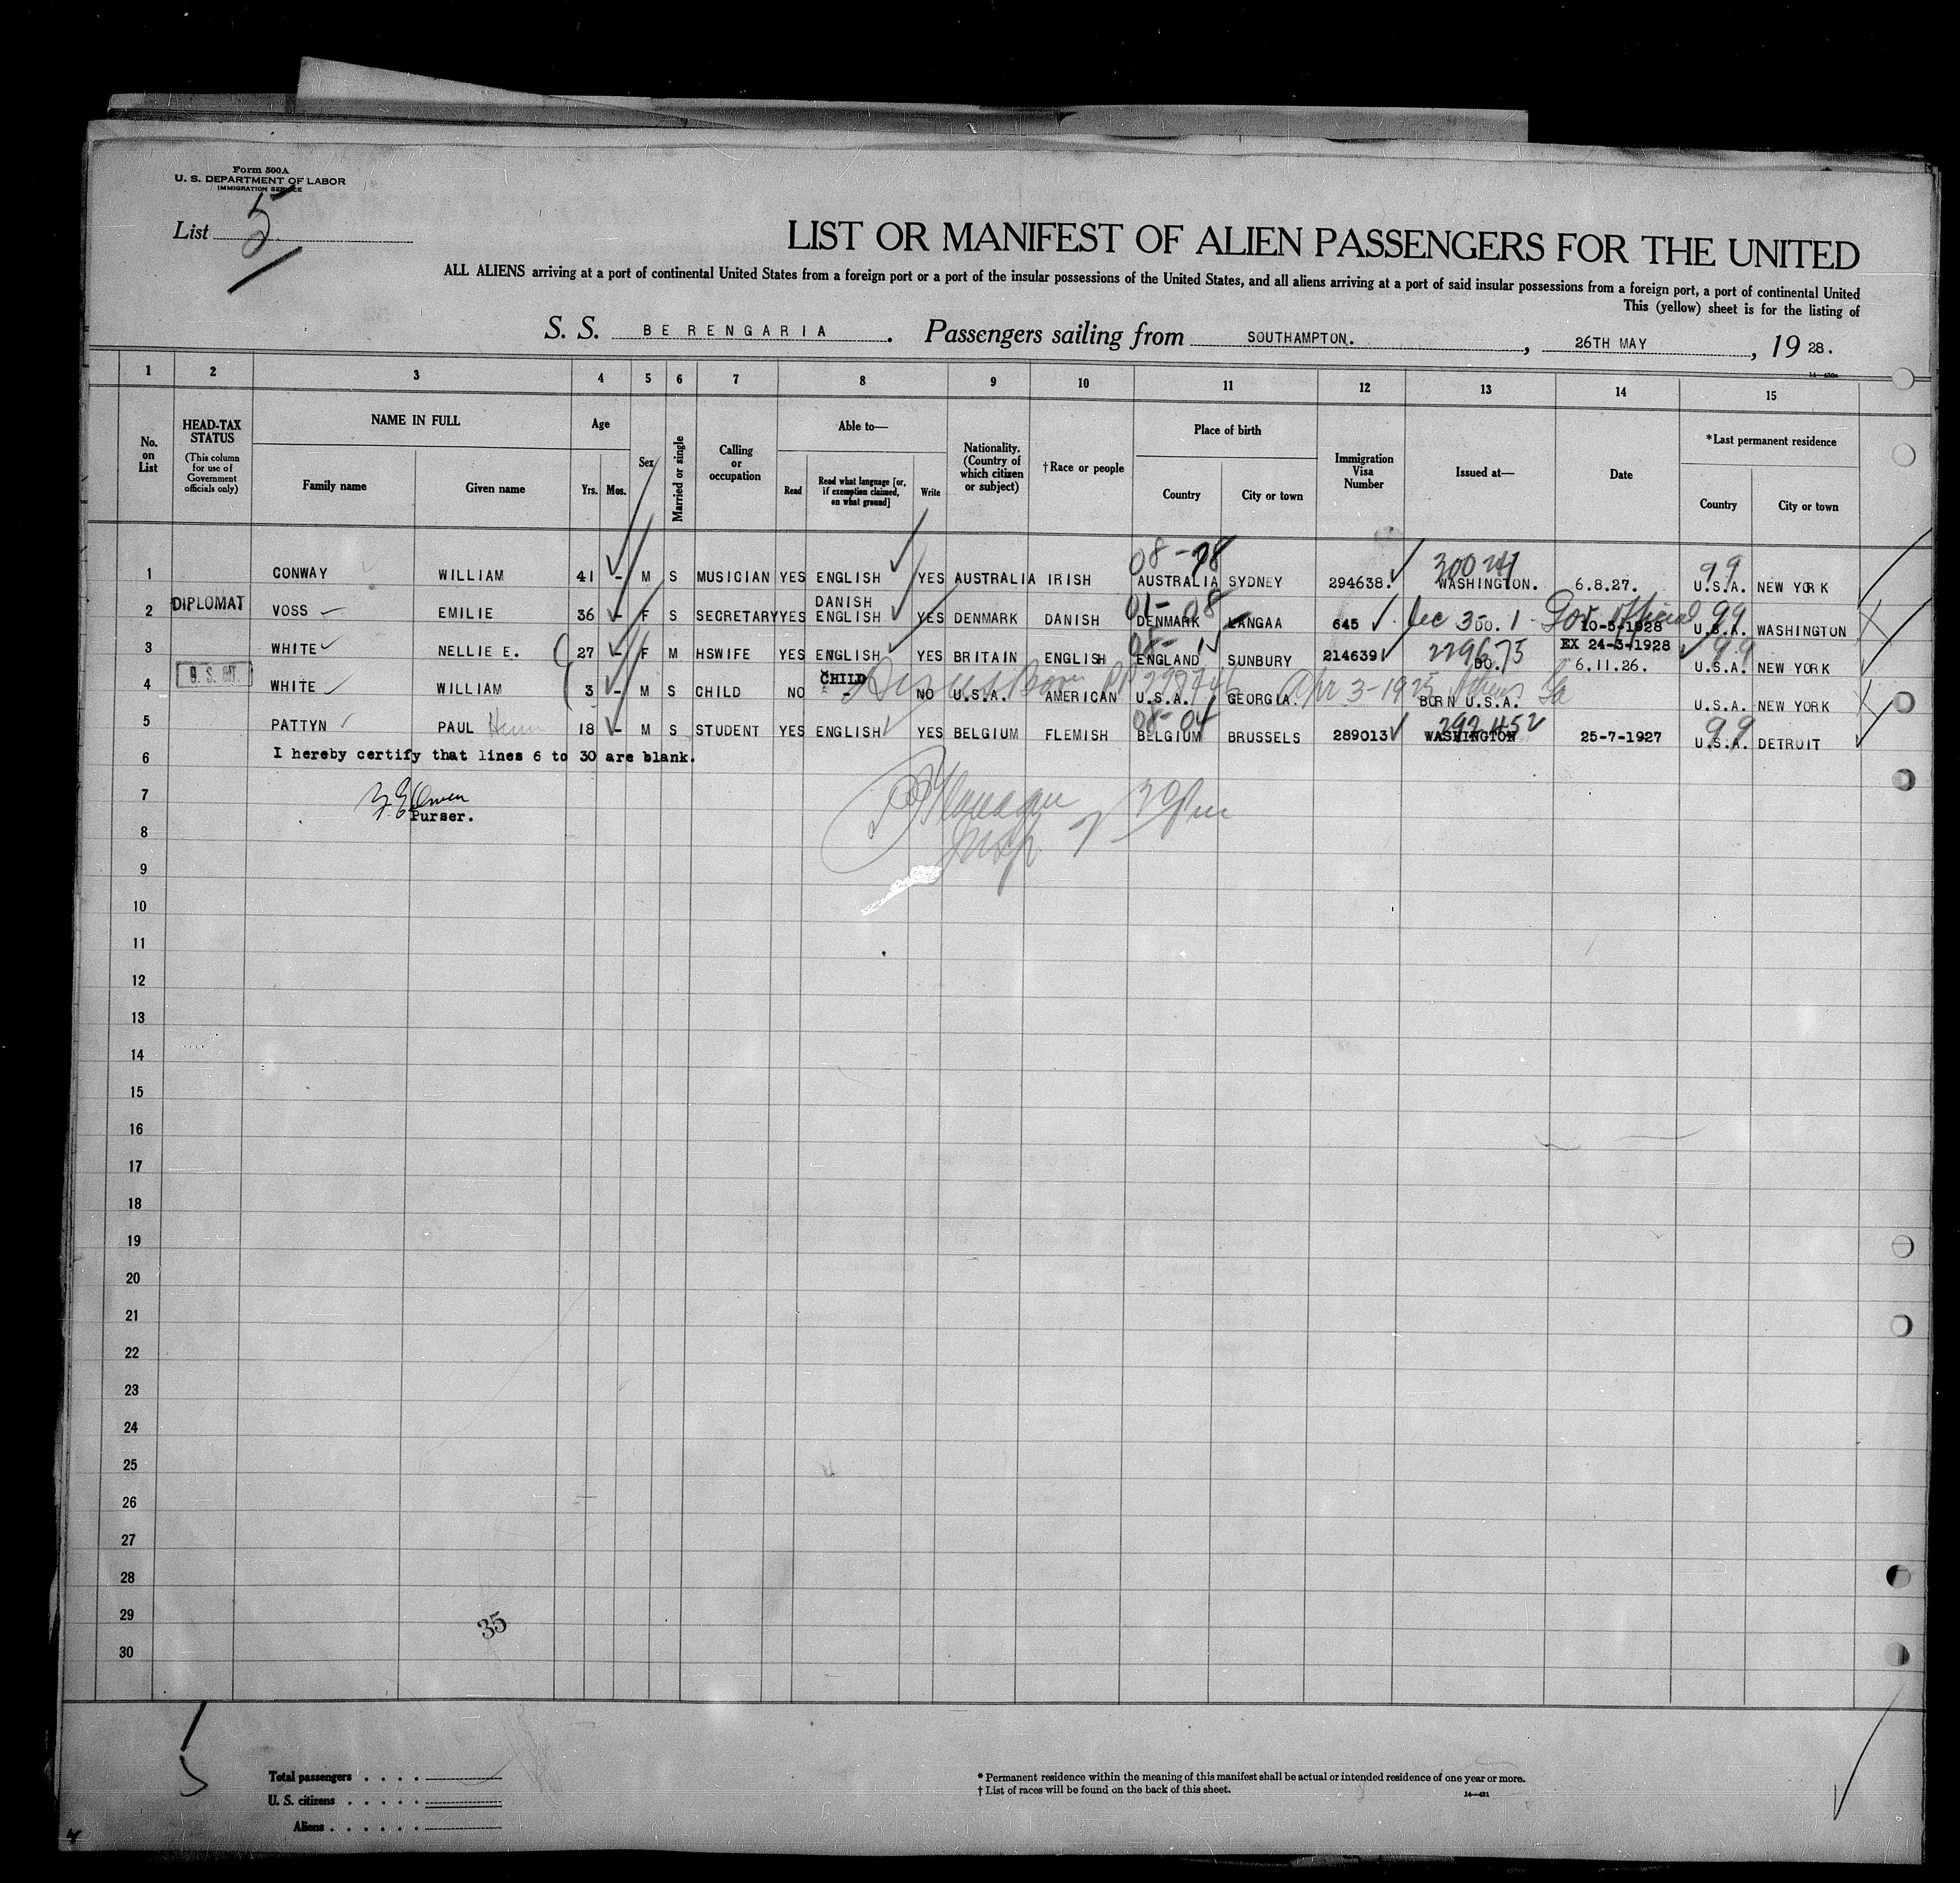 Form 500A
U. S. DEPARTMENT OF LABOR
IMMIGRATION SERVICE
List 5
LIST OR MANIFEST OF ALIEN PASSENGERS FOR THE UNITED
ALL ALIENS arriving at a port of continental United States from a foreign port or a port of the insular possessions of the United States, and all aliens arriving at a port of said insular possessions from a foreign port, a port of continental United
This (yellow) sheet is for the listing of
S. S. BERENGARIA. Passengers sailing from SOUTHAMPTON., 26TH MAY, 1928.
1 2 3 4 5 6 7 8 9 10 11 12 13 14 15
No. on List
HEAD-TAX STATUS
(This column for use of Government officials only)
NAME IN FULL
Family name
Given name
Age
Yrs. Mos.
Sex
Married or single
Calling or occupation
Able to—
Read
Read what language [or, if exemption claimed, on what ground]
Write
Nationality. (Country of which citizen or subject)
†Race or people
Place of birth
Country
City or town
Immigration Visa Number
Issued at—
Date
*Last permanent residence
Country
City or town
1 CONWAY WILLIAM 41 - M S MUSICIAN YES ENGLISH YES AUSTRALIA IRISH AUSTRALIA SYDNEY 294638. WASHINGTON. 6.8.27. 99 U.S.A. NEW YORK
2 DIPLOMAT VOSS EMILIE 36 - F S SECRETARY YES DANISH ENGLISH YES DENMARK DANISH DENMARK LANGAA 645 Sec 3-1 DO. Gov official 10-5-1928 99 U.S.A. WASHINGTON
EX 24-5-1928
3 WHITE NELLIE E. 27 - F M HSWIFE YES ENGLISH YES BRITAIN ENGLISH ENGLAND SUNBURY 214639 229675 DO. 6.11.26. 99 U.S.A. NEW YORK
4 U. S. CIT. WHITE WILLIAM 3 - M S CHILD NO CHILD - NO U.S.A. AMERICAN U.S.A. GEORGIA. Apr 3-1925 Athens Ga BORN U.S.A. U.S.A. NEW YORK
5 PATTYN PAUL 18 - M S STUDENT YES ENGLISH YES BELGIUM FLEMISH BELGIUM BRUSSELS 289013 292452 WASHINGTON 25-7-1927 99 U.S.A. DETROIT
6 I hereby certify that lines 6 to 30 are blank.
7
Purser.
8
9
10
11
12
13
14
15
16
17
18
19
20
21
22
23
24
25
26
27
28
29
35
30
Total passengers . . . .
U. S. citizens . . . . .
Aliens . . . . . .
* Permanent residence within the meaning of this manifest shall be actual or intended residence of one year or more.
† List of races will be found on the back of this sheet.
14—431